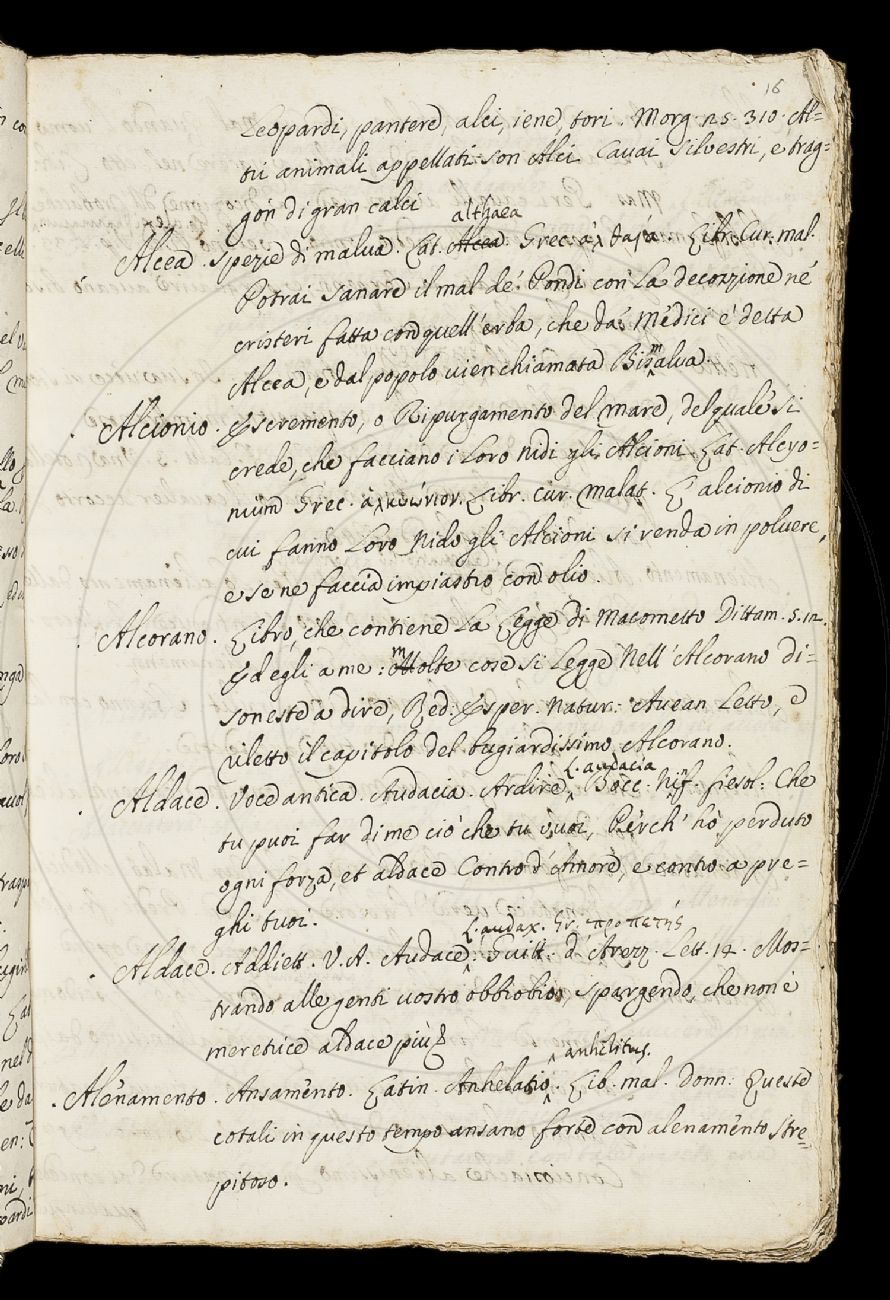 16
Leopardi, pantere, alci, iene, tori. Morg. n.s. 310. Al=
tri animali appellati son Alci Cavai silvestri, e trag=
gon di gran calci
althaea
Alcea. Spezie di malva. Lat. Alcea. Grec. Libr. Cur. mal.
Potrai sanare il mal de' Pondi con la decozzione ne'
cristeri fatta con quell'erba, che da' Medici è detta
Alcea, e dal popolo vien chiamata Bismalva.
Alcionio. Escremento, o Ripurgamento del mare, del quale si
crede, che facciano i loro nidi gli Alcioni. Lat. Alcyo=
nium Grec. ἀλκυώνιον. Libr. cur. malat. L'alcionio di
cui fanno loro nido gli Alcioni si renda in polvere,
e se ne faccia impiastro con olio.
Alcorano. Libro, che contiene la Legge di Macometto Dittam. 5. 12.
Ed egli a me: Molte cose si legge Nell'Alcorano di=
soneste a dire, Red. Esper. Natur. Avean letto, e
riletto il capitolo del bugiardissimo Alcorano.
L. audacia
Aldace. Voce antica. Audacia. Ardire, Bocc. Nif. fiesol: Che
tu puoi far di me ciò che tu vuoi, Perch' hò perduto
ogni forza, et aldace Contro d'Amore, e contro a pre=
ghi tuoi.
L. audax. Gr. προπετής
Aldace. Addiett. V. A. Audace. Guitt. d'Arezz. Lett. 14. Mos=
trando alle genti vostro obbrobrio, spargendo, che non è
meretrice aldace più
anhelitus.
Alenamento. Ansamento. Latin. Anhelatio. Lib. mal. donn: Queste
cotali in questo tempo ansano forte con alenamento stre=
pitoso.